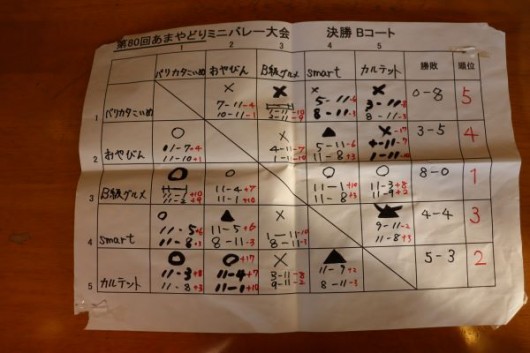 第80回あまやどりミニバレー大会 決勝 Bコート
1 2 3 4 5
バリカタこいめ おやびん B級グルメ smart カルテット 勝敗 順位
1 バリカタこいめ × × × × 0-8 5
7-11-4 5-11-6
10-11-1 8-11-3
2 おやびん ○ × ▲ × 3-5 4
11-7+4 4-11-7 5-11-6
11-10+1 1-11-10 11-8+3
3 B級グルメ ○ ○ ○ ○ 8-0 1
11-4+7 11-1+10 11-3+8
11-2+9 11-1+10 11-8+3 11-9+2
4 smart ○ ▲ × ▲ 4-4 3
11-5+6 11-5+6 1-11-10 9-11-2
11-8+3 8-11-3 8-11-3 11-8+3
5 カルテット ○ ○ × ▲ 5-3 2
11-3+8 11-4+7 3-11-8 11-9+2
11-8+3 11-1+10 9-11-2 8-11-3